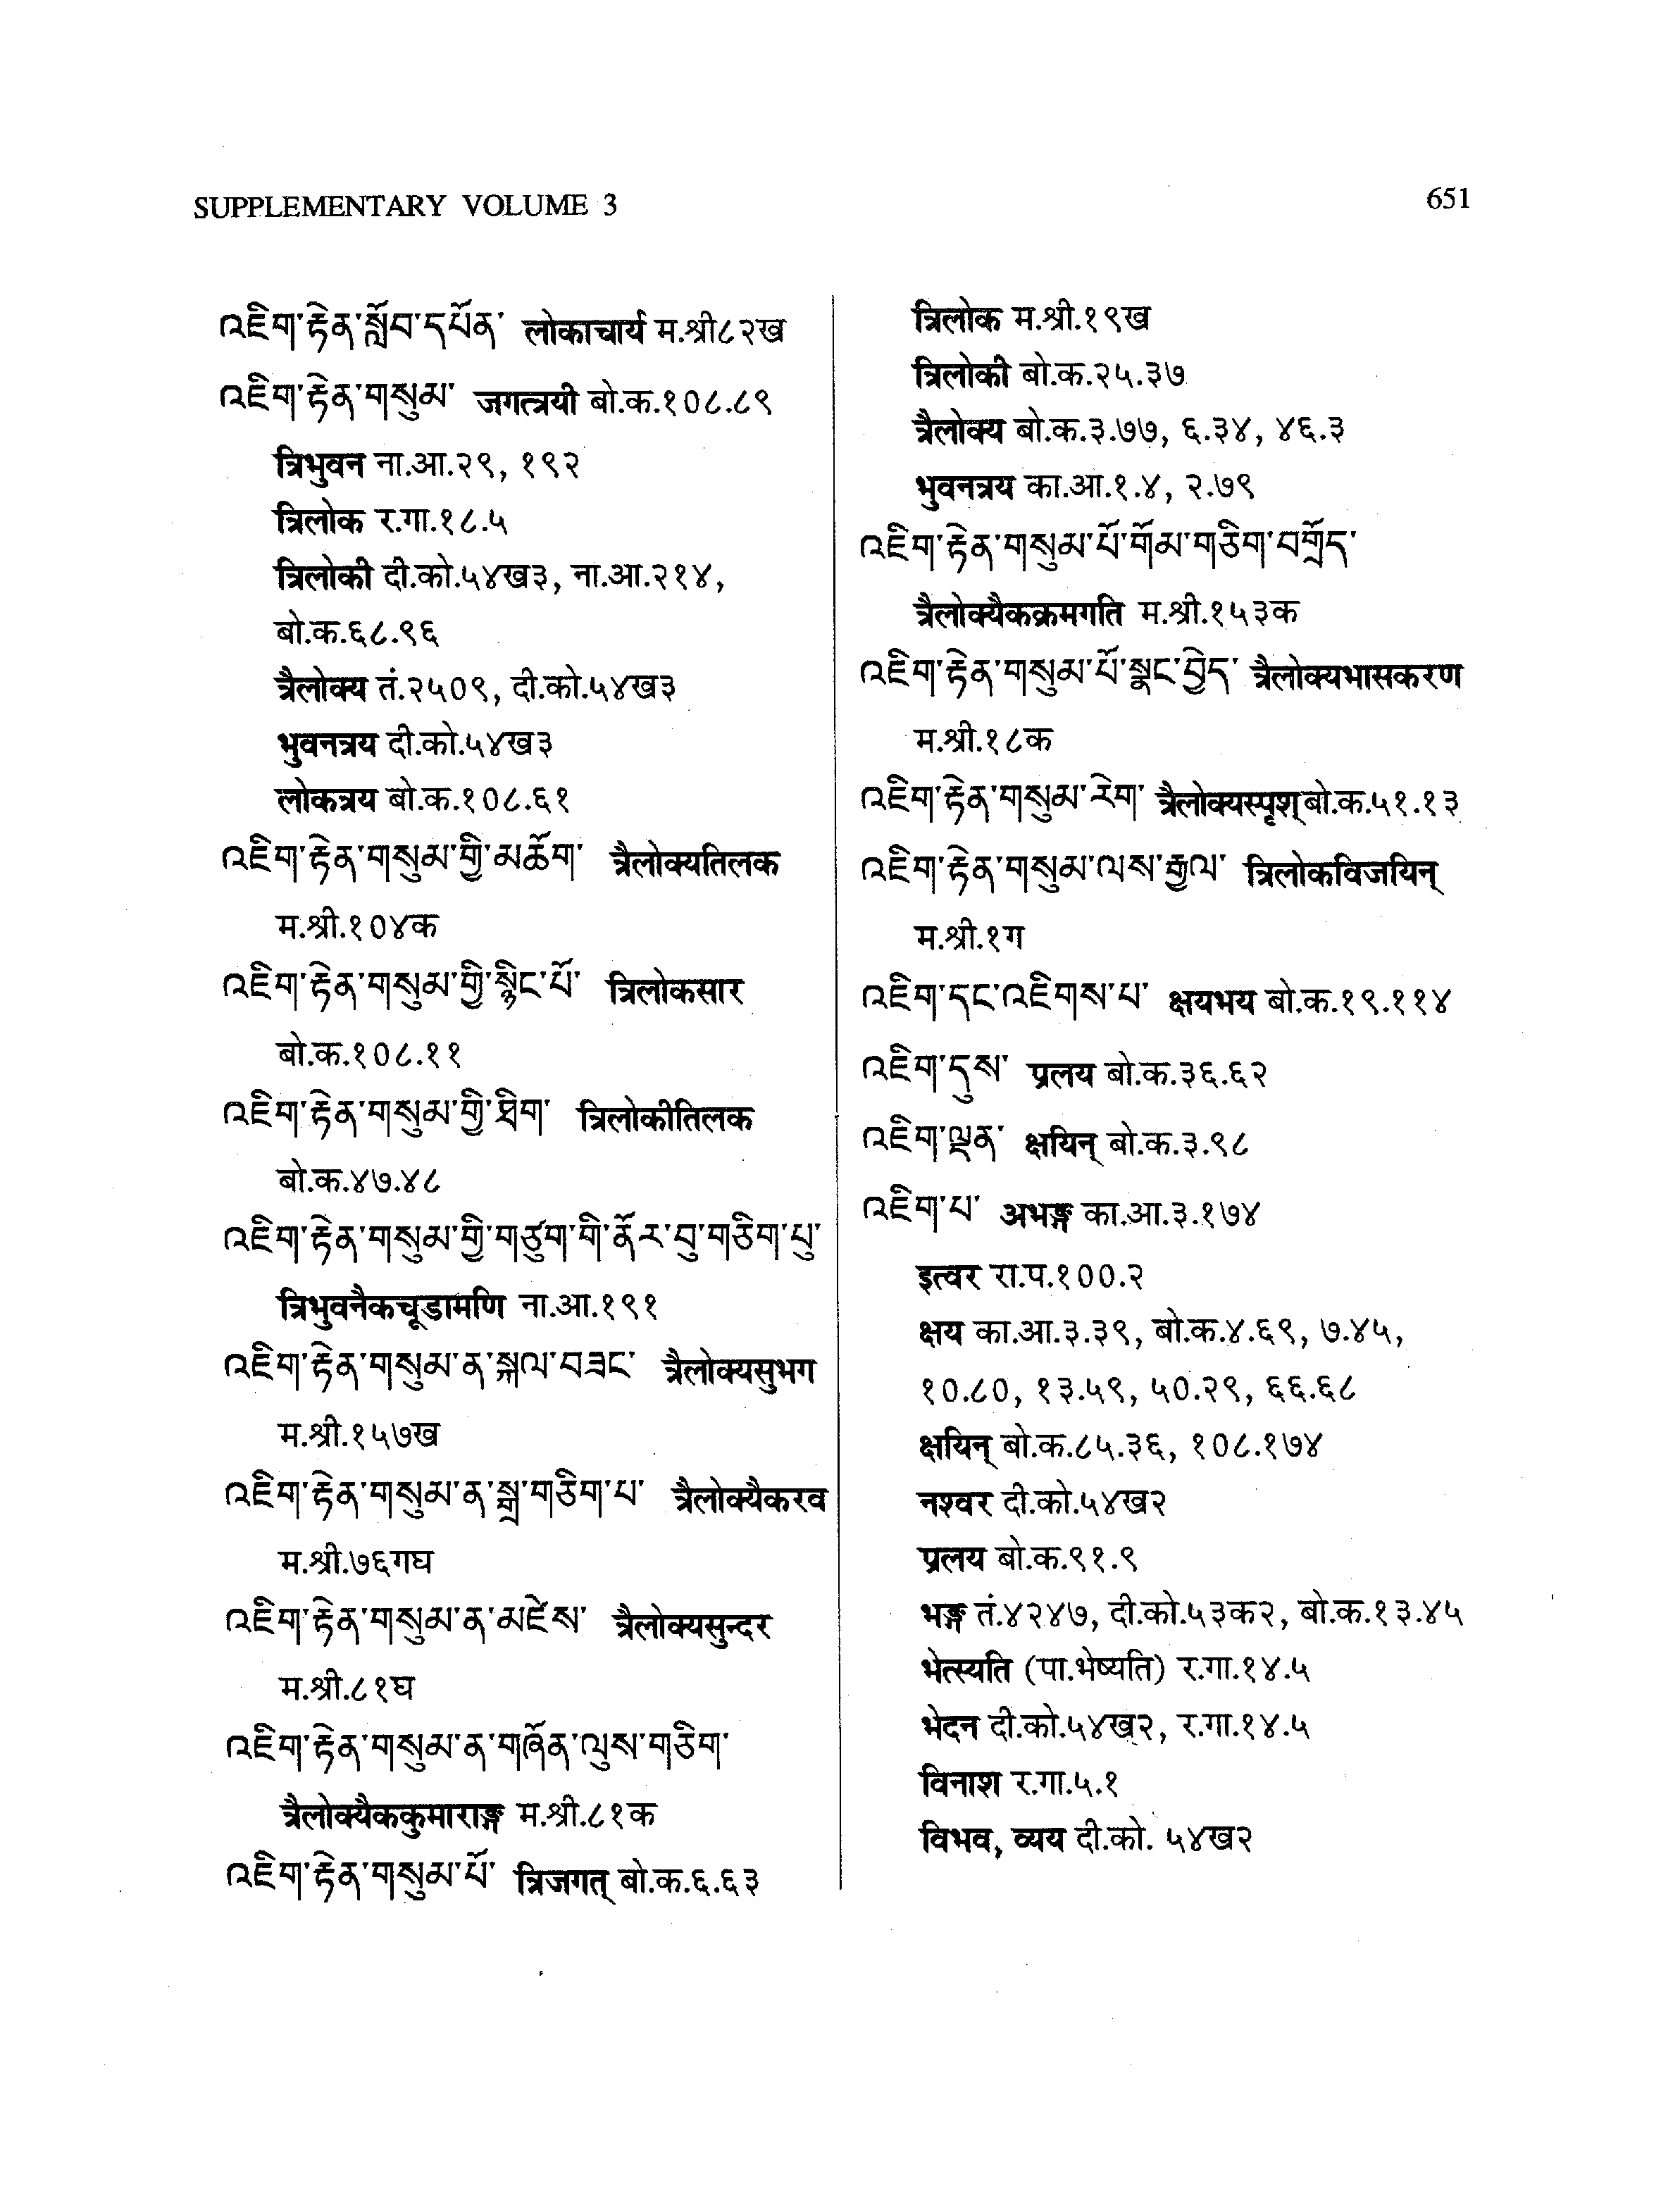 SUPPLEMENTARY VOLUME 3
651
འཇིག་རྟེན་སློབ་དཔོན་ लोकाचार्य म.श्री८२ख
འཇིག་རྟེན་གསུམ་ जगत्त्रयी बो.क.१०८.८९
त्रिभुवन ना.आ.२९, १९२
त्रिलोक र.गा.१८.५
त्रिलोकी दी.को.५४ख३, ना.आ.२१४,
बो.क.६८.९६
त्रैलोक्य तं.२५०९, दी.को.५४ख३
भुवनत्रय दी.को.५४ख३
लोकत्रय बो.क.१०८.६१
འཇིག་རྟེན་གསུམ་གྱི་མཆོག་ त्रैलोक्यतिलक
म.श्री.१०४क
འཇིག་རྟེན་གསུམ་གྱི་སྙིང་པོ་ त्रिलोकसार
बो.क.१०८.११
འཇིག་རྟེན་གསུམ་གྱི་ཐིག་ त्रिलोकीतिलक
बो.क.४७.४८
འཇིག་རྟེན་གསུམ་གྱི་གཙུག་གི་ནོར་བུ་གཅིག་པུ་
त्रिभुवनैकचूडामणि ना.आ.१९१
འཇིག་རྟེན་གསུམ་ན་སྐལ་བཟང་ त्रैलोक्यसुभग
म.श्री.१५७ख
འཇིག་རྟེན་གསུམ་ན་སྒྲ་གཅིག་པ་ त्रैलोक्यैकरव
म.श्री.७६गघ
འཇིག་རྟེན་གསུམ་ན་མཛེས་ त्रैलोक्यसुन्दर
म.श्री.८१घ
འཇིག་རྟེན་གསུམ་ན་གཞོན་ལུས་གཅིག་
त्रैलोक्यैककुमाराङ्ग म.श्री.८१क
འཇིག་རྟེན་གསུམ་པོ་ त्रिजगत् बो.क.६.६३
त्रिलोक म.श्री.१९ख
त्रिलोकी बो.क.२५.३७
त्रैलोक्य बो.क.३.७७, ६.३४, ४६.३
भुवनत्रय का.आ.१.४, २.७९
འཇིག་རྟེན་གསུམ་པོ་གོམ་གཅིག་བགྲོད་
त्रैलोक्यैकक्रमगति म.श्री.१५३क
འཇིག་རྟེན་གསུམ་པོ་སྣང་བྱེད་ त्रैलोक्यभासकरण
म.श्री.१८क
འཇིག་རྟེན་གསུམ་རེག་ त्रैलोक्यस्पृश् बो.क.५१.१३
འཇིག་རྟེན་གསུམ་ལས་རྒྱལ་ त्रिलोकविजयिन्
म.श्री.१ग
འཇིག་དང་འཇིགས་པ་ क्षयभय बो.क.१९.११४
འཇིག་དུས་ प्रलय बो.क.३६.६२
འཇིག་ལྡན་ क्षयिन् बो.क.३.९८
འཇིག་པ་ अभङ्ग का.आ.३.१७४
इत्वर रा.प.१००.२
क्षय का.आ.३.३९, बो.क.४.६९, ७.४५,
१०.८०, १३.५९, ५०.२९, ६६.६८
क्षयिन् बो.क.८५.३६, १०८.१७४
नश्वर दी.को.५४ख२
प्रलय बो.क.९१.९
भङ्ग तं.४२४७, दी.को.५३क२, बो.क.१३.४५
भेत्स्यति (पा.भेष्यति) र.गा.१४.५
भेदन दी.को.५४ख२, र.गा.१४.५
विनाश र.गा.५.१
विभव, व्यय दी.को. ५४ख२